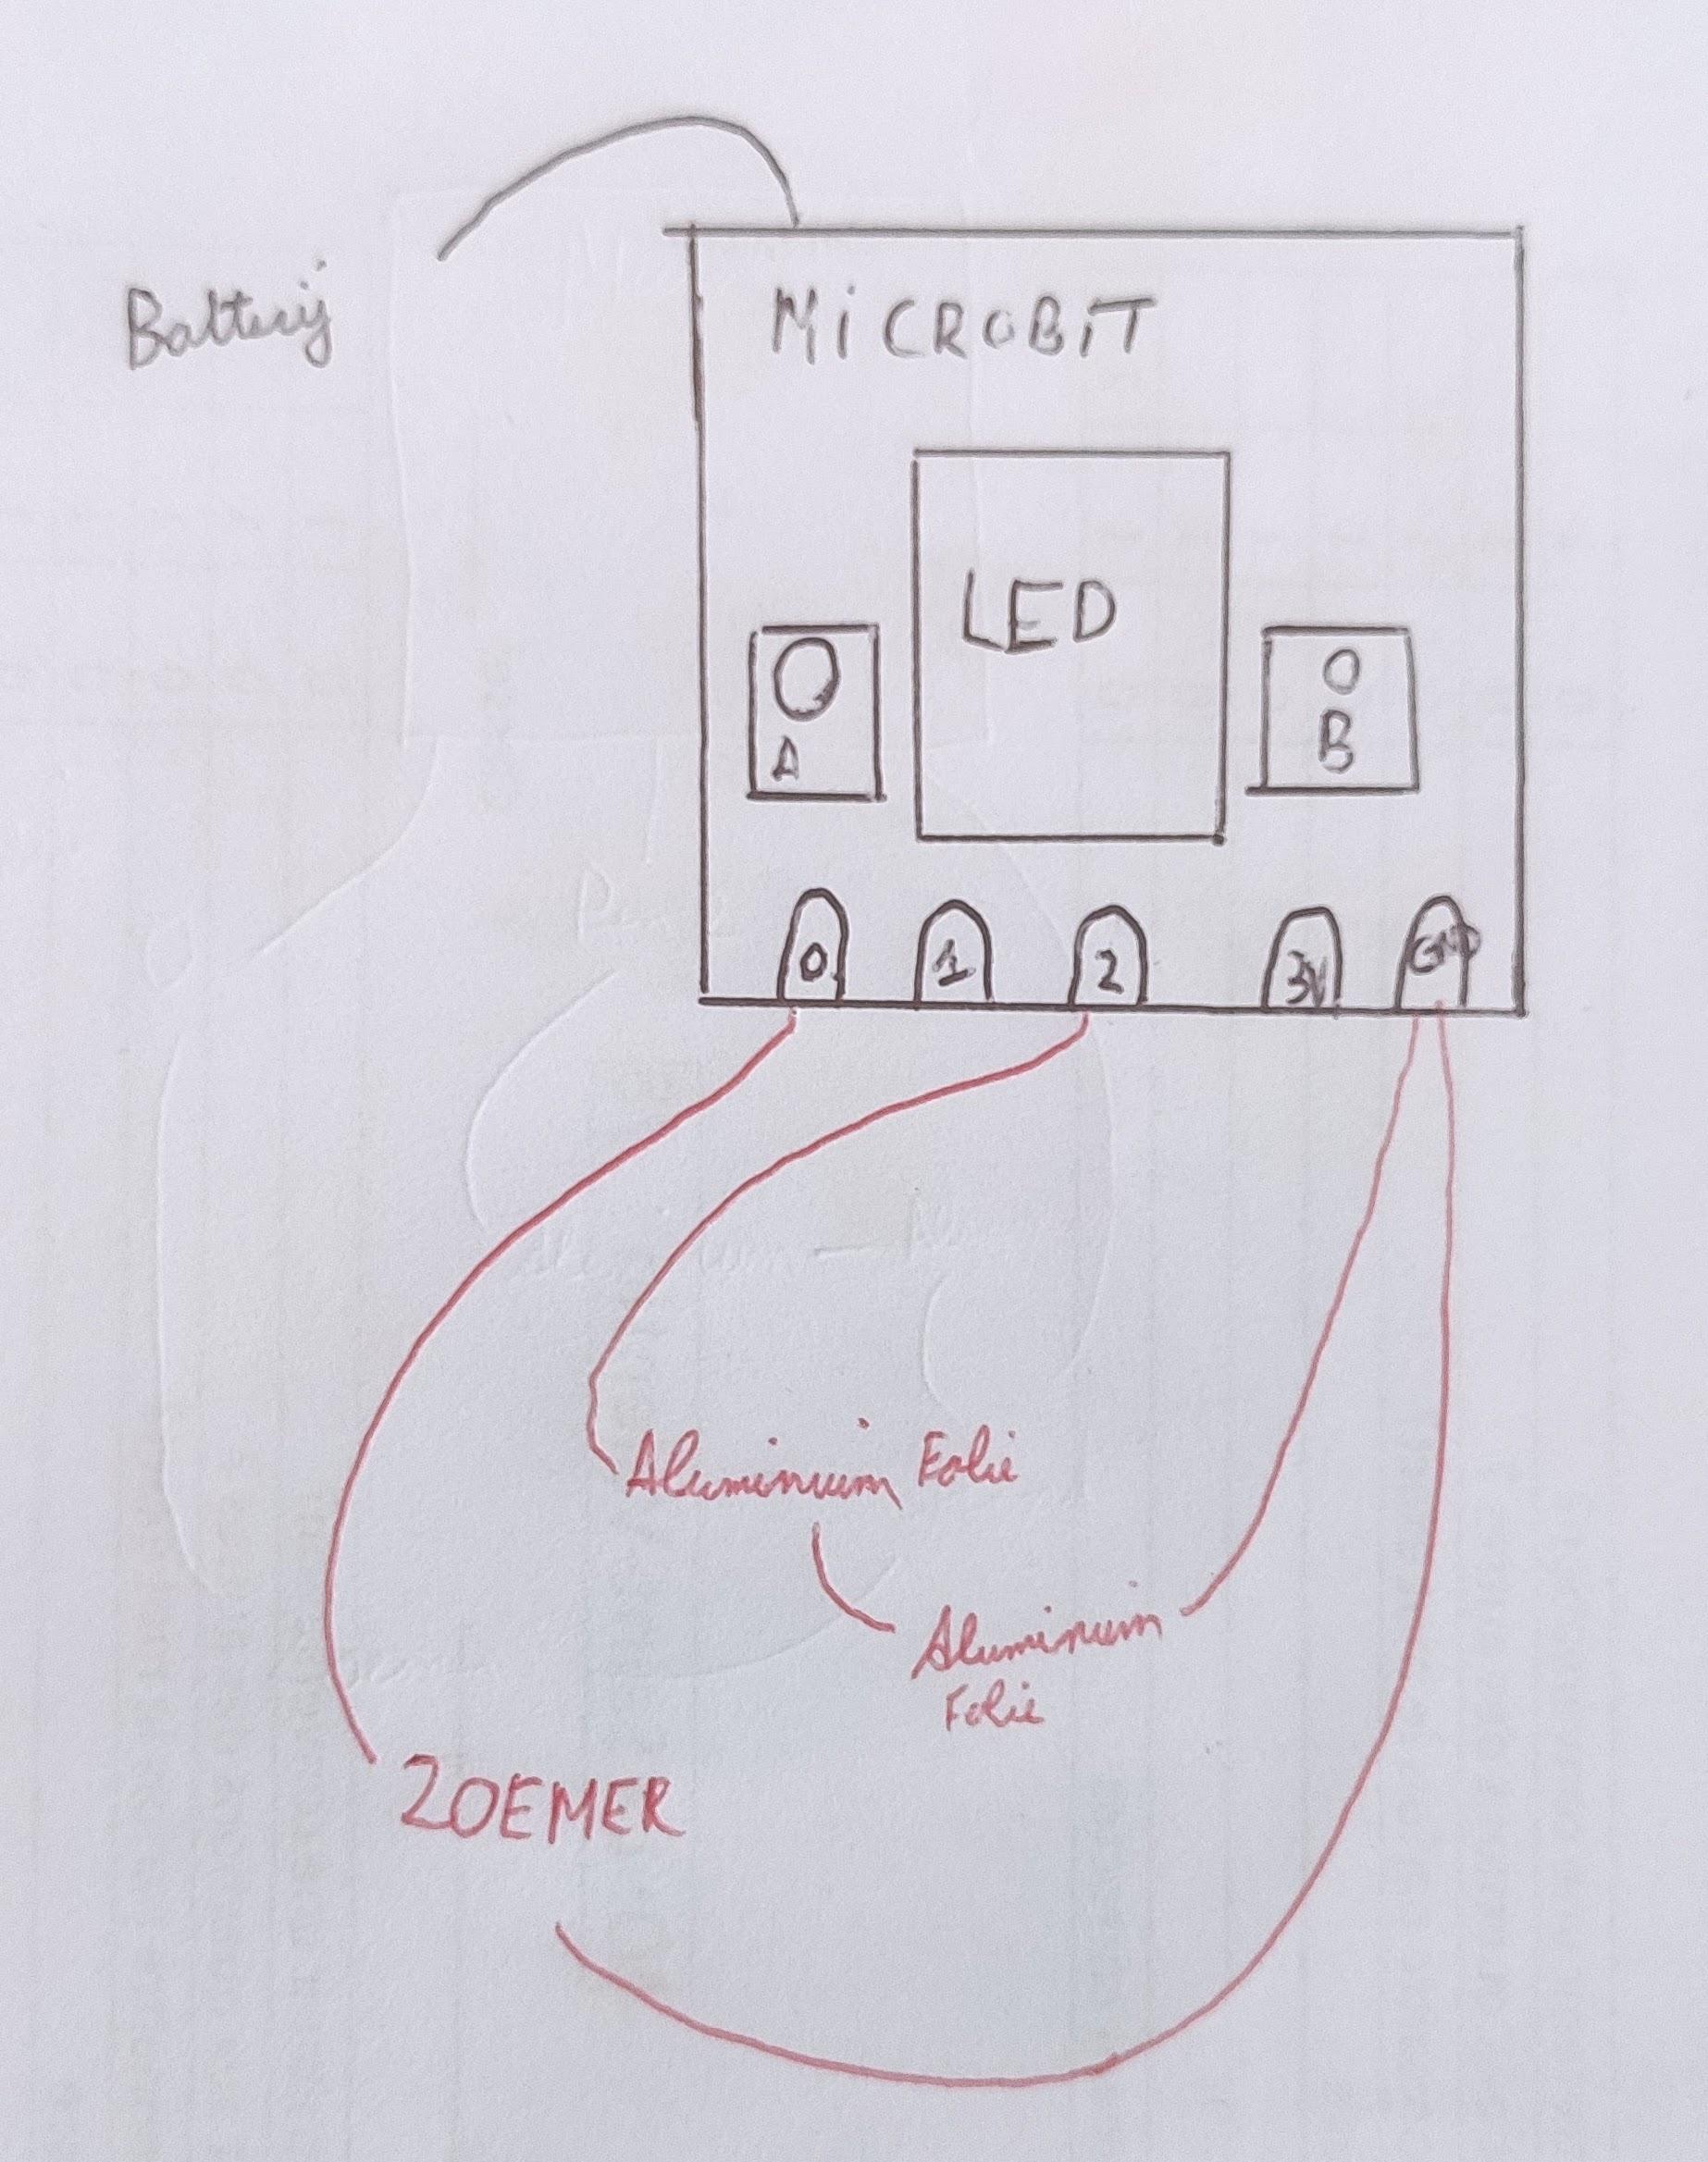 Batterij
MiCROBiT
LED
A
B
0
1
2
3V
GND
Aluminium Folie
Aluminium
Folie
ZOEMER